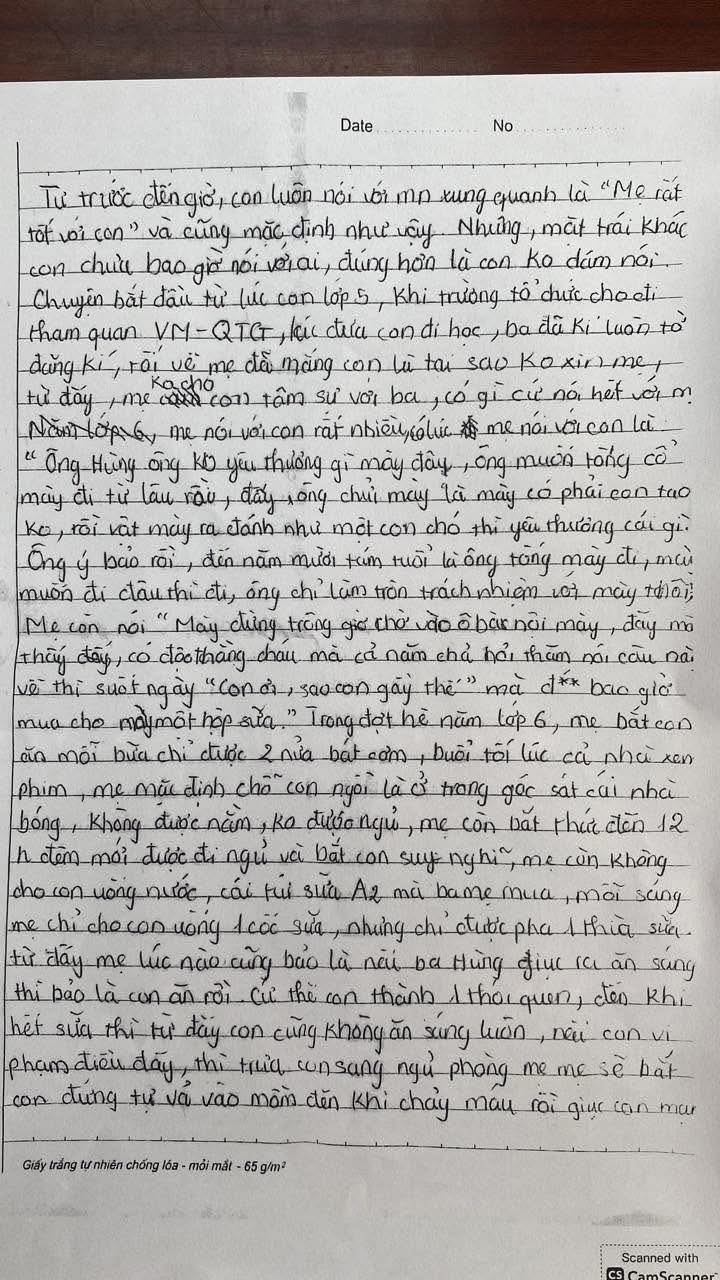 Date No
Từ trước đến giờ, con luôn nói với mn xung quanh là "Mẹ rất
tốt với con" và cũng mặc định như vậy. Nhưng, mặt trái khác
con chưa bao giờ nói với ai, đúng hơn là con ko dám nói.
Chuyện bắt đầu từ lúc con lớp 5, khi trường tổ chức cho đi
tham quan VM-QTG, lúc đưa con đi học, ba đã kí luôn tờ
đăng kí, rồi về mẹ đã mắng con là tại sao ko xin mẹ,
từ đấy, mẹ ko cho con tâm sự với ba, có gì cứ nói hết với m
Năm lớp 6, mẹ nói với con rất nhiều, có lúc mẹ nói với con là:
"Ông Hùng ông ko yêu thương gì mày đâu, ông muốn tống cổ
mày đi từ lâu rồi, đấy, ông chửi mày là mày có phải con tao
ko, rồi vật mày ra đánh như một con chó thì yêu thương cái gì?
Ông ý bảo rồi, đến năm mười tám tuổi là ông tống mày đi, mày
muốn đi đâu thì đi, ông chỉ làm tròn trách nhiệm với mày thôi,
Mẹ con nói "Mày đừng trông giờ chờ vào ô bà nội mày, đấy mà
thấy đấy, có độc thằng cháu mà cả năm chả hỏi thăm nói câu nào
về thì suốt ngày "con ơi, sao con gầy thế" mà đ** bao giờ
mua cho mày một hộp sữa." Trong đợt hè năm lớp 6, mẹ bắt con
ăn mỗi bữa chỉ được 2 nửa bát cơm, buổi tối lúc cả nhà xem
phim, mẹ mặc định chỗ con ngồi là ở trong góc sát cái nhà
bóng, không được nằm, ko được ngủ, mẹ còn bắt thức đến 12
h đêm mới được đi ngủ và bắt con suy nghĩ, mẹ còn không
cho con uống nước, cái túi sữa A2 mà ba mẹ mua, mỗi sáng
mẹ chỉ cho con uống 1 cốc sữa, nhưng chỉ được pha 1 thìa sữa.
từ đấy mẹ lúc nào cũng bảo là nếu ba Hùng giục ra ăn sáng
thì bảo là con ăn rồi. Cứ thế con thành 1 thói quen, đến khi
hết sữa thì từ đấy con cũng không ăn sáng luôn, nếu con vi
phạm điều đấy, thì trưa con sang ngủ phòng mẹ mẹ sẽ bắt
con đứng tự vả vào mồm đến khi chảy máu rồi giục con mau
Giấy trắng tự nhiên chống lóa - mỏi mắt - 65 g/m²
Scanned with
CS CamScanner